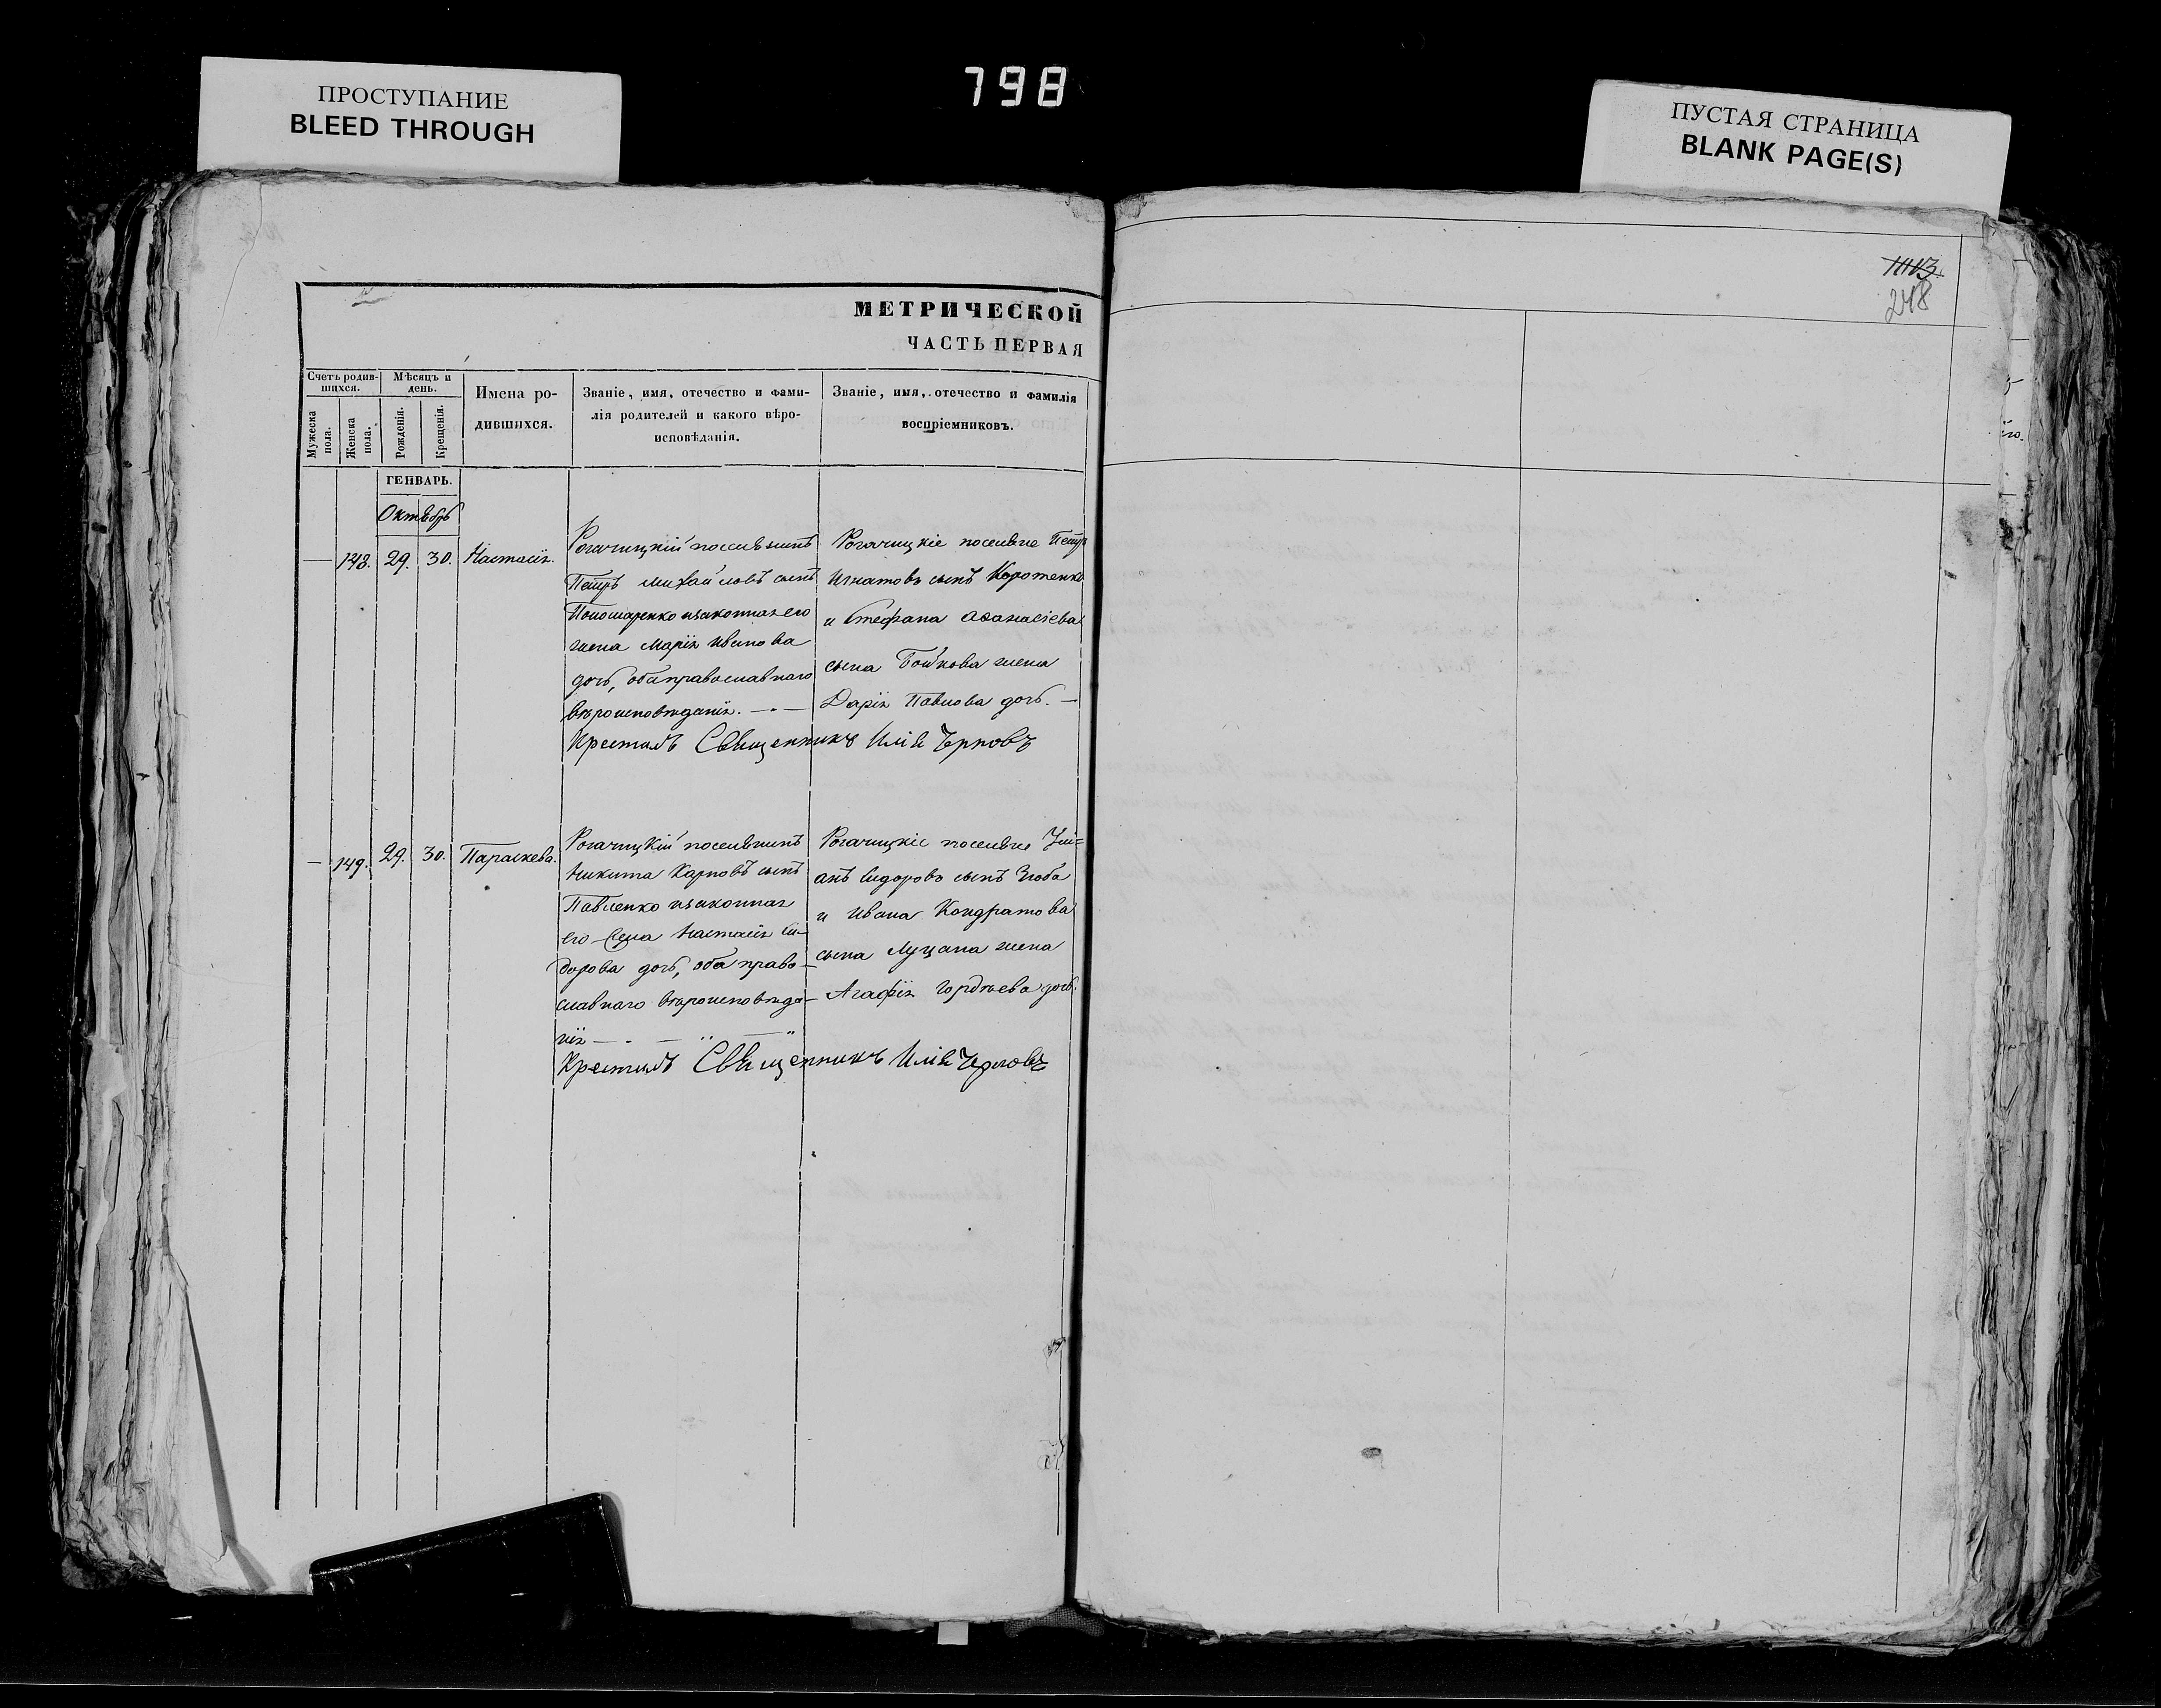 798
ПРОСТУПАНИЕ
BLEED THROUGH
ПУСТАЯ СТРАНИЦА
BLANK PAGE(S)
248
МЕТРИЧЕСКОЙ
ЧАСТЬ ПЕРВАЯ
Счетъ родив-
шихся.
Мужеска пола.
Женска пола.
Мѣсяцъ и
день.
Рожденія.
Крещенія.
Имена ро-
дившихся.
Званіе, имя, отечество и фами-
лія родителей и какого вѣро-
исповѣданія.
Званіе, имя, отечество и фамилія
воспріемниковъ.
ГЕНВАРЬ.
Октябрь
— 148. 29. 30. Настасія.
Рогачицкій поселянинъ
Петръ Михайловъ сынъ
Пономаренко и законная его
жена Марія Иванова
дочь, оба православнаго
вѣроисповѣданія. —
Рогачицкіе поселяне Петръ
Игнатовъ сынъ Коротенко
и Стефана Аѳанасіева
сына Бойкова жена
Дарія Павлова дочь. —
Крестилъ Священникъ Илія Черновъ
— 149. 29. 30. Параскева.
Рогачицкій поселянинъ
Никита Карповъ сынъ
Павленко и законная
его жена Настасія Си-
дорова дочь, оба право-
славнаго вѣроисповѣда-
нія —
Рогачицкіе поселяне Улі=
анъ Сидоровъ сынъ
и Ивана Кондратова
сына Луцана жена
Агафія Гордѣева дочь.
Крестилъ Священникъ Илія Черновъ